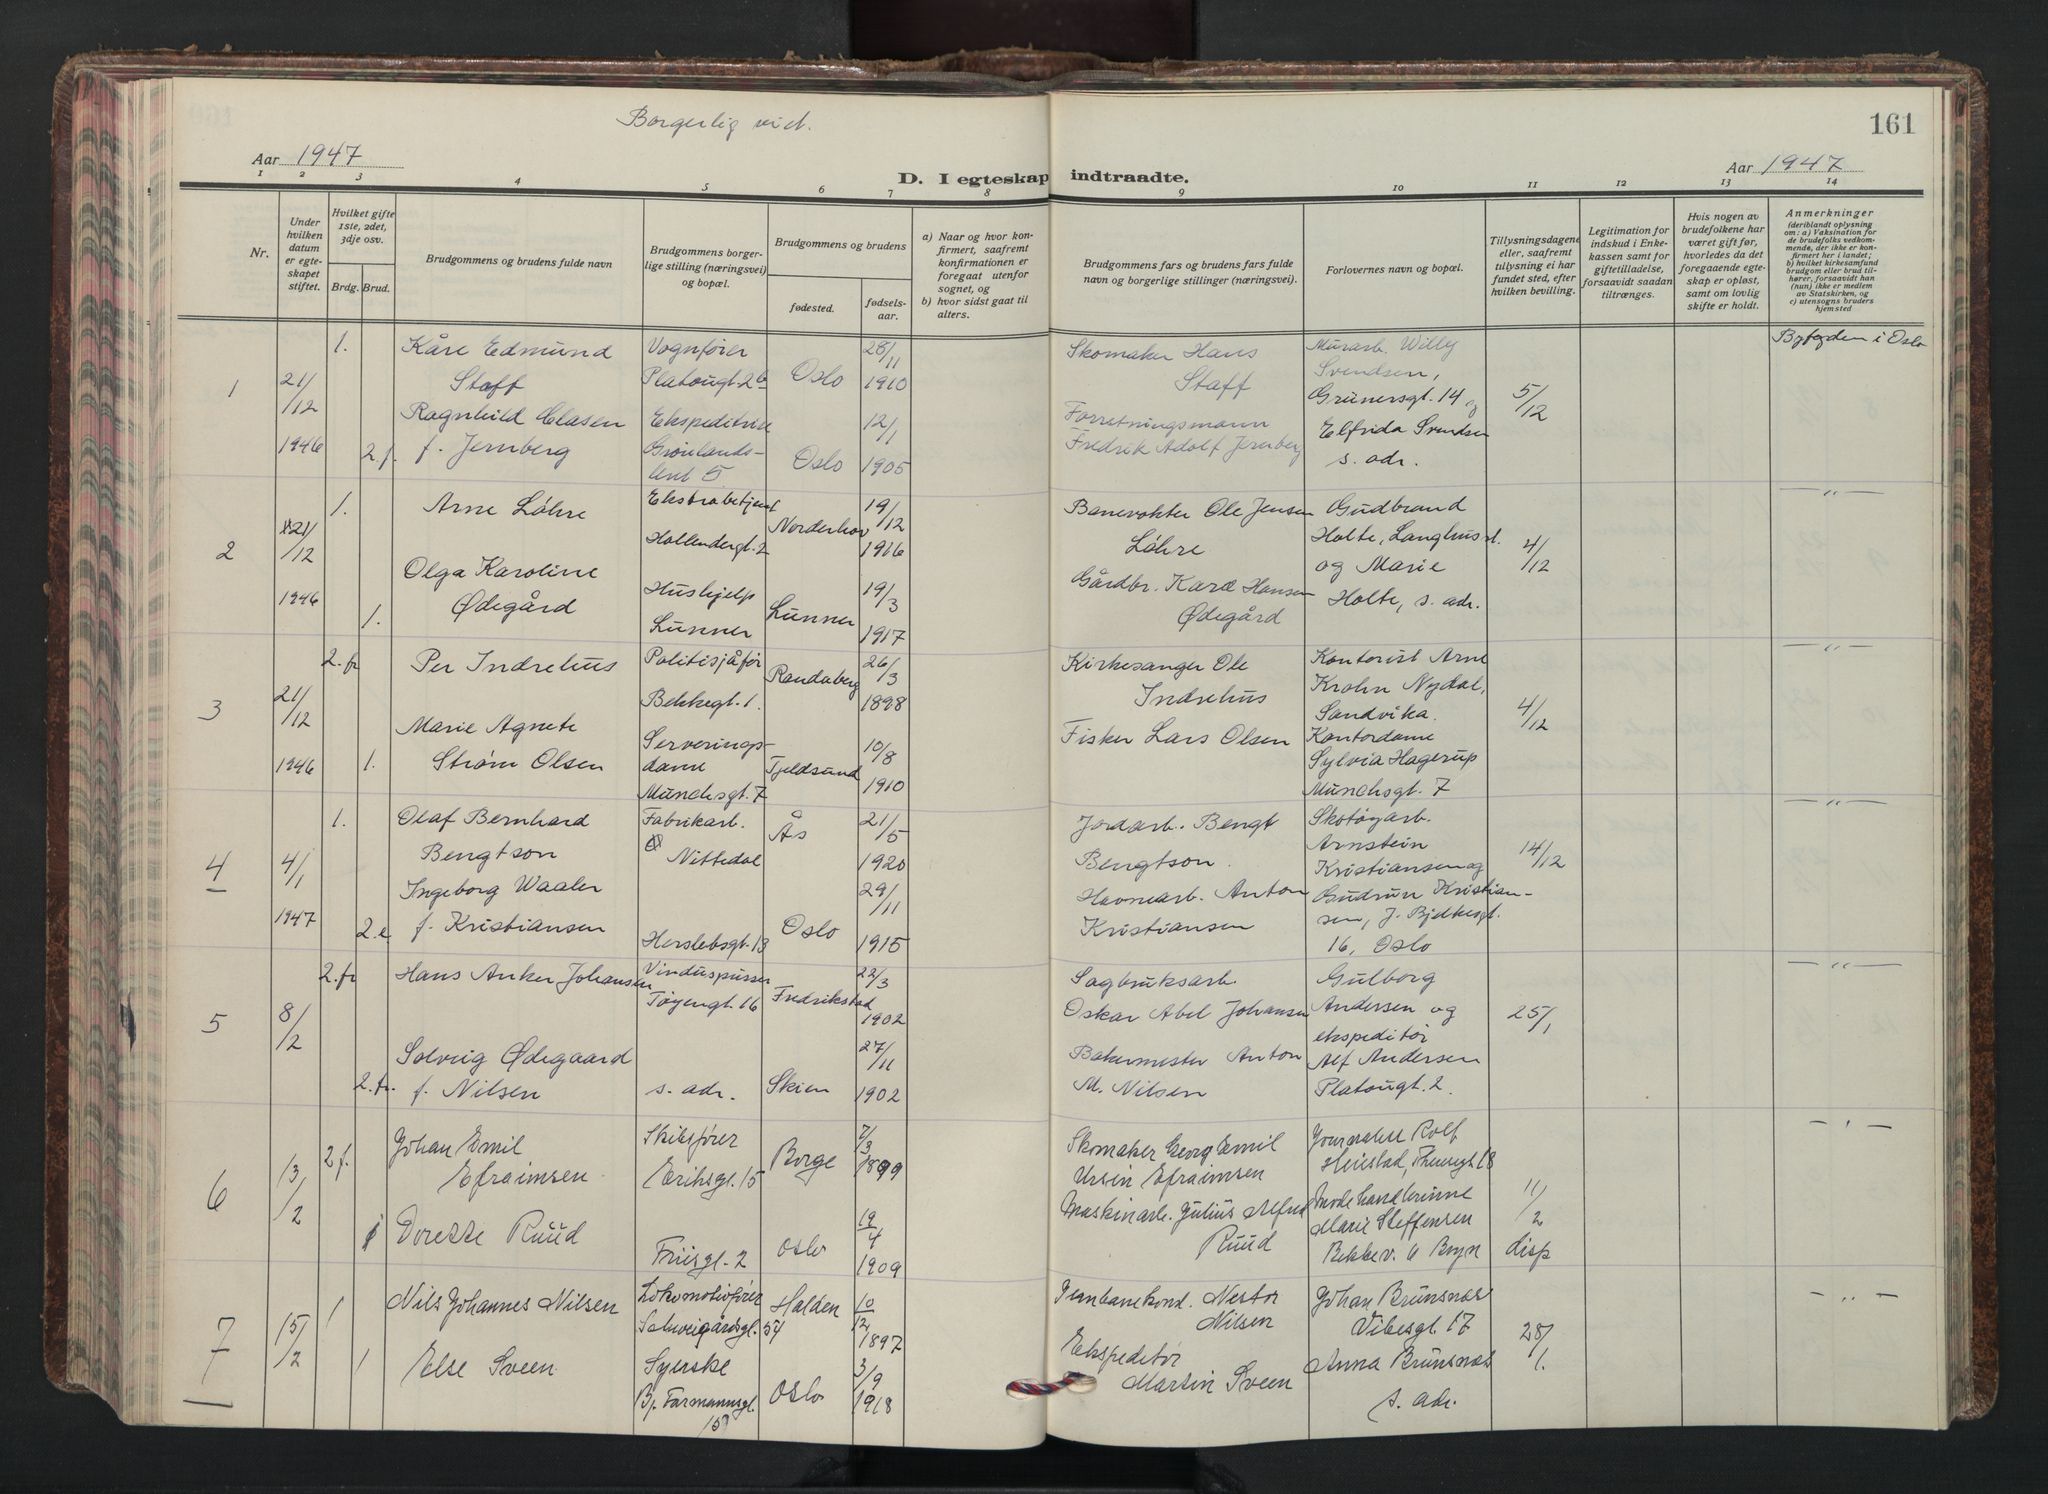 161
Borgerlig viet.
Aar 1947
D. I egteskap indtraadte.
Aar 1947
1 2 3 4 5 6 7 8 9 10 11 12 13 14
Nr.
Under hvilken datum er egteskapet stiftet.
Hvilket gifte 1ste, 2det, 3dje osv.
Brdg. Brud.
Brudgommens og brudens fulde navn
Brudgommens borgerlige stilling (næringsvei) og bopæl.
Brudgommens og brudens
fødested.
fødselsaar.
a) Naar og hvor konfirmert, saafremt konfirmationen er foregaat utenfor sognet, og
b) hvor sidst gaat til alters.
Brudgommens fars og brudens fars fulde navn og borgerlige stillinger (næringsvei).
Forlovernes navn og bopæl.
Tillysningsdagene eller, saafremt tillysning ei har fundet sted, efter hvilken bevilling.
Legitimation for indskud i Enkekassen samt for giftetilladelse, forsaavidt saadan tiltrænges.
Hvis nogen av brudefolkene har været gift før, hvorledes da det foregaaende egteskap er opløst, samt om lovlig skifte er holdt.
Anmerkninger (deriblandt oplysning om: a) Vaksination for de brudefolks vedkommende, der ikke er konfirmert her i landet; b) hvilket kirkesamfund brudgom eller brud tilhører, forsaavidt han (hun) ikke er medlem av Statskirken, og c) utensogns bruders hjemsted
1
21/12
1946
1.
Kåre Edmund
Staff
Vognfører
Platougt. 26
Oslo
28/11
1910
Skomaker Hans
Staff
Murarb. Willy
Svendsen,
Grünersgt. 14 og
Elfrida Svendsen
s. adr.
5/12
Byfogden i Oslo
2 f.
Ragnhild Clasen
f. Jernberg
Ekspeditrise
Grønlands-
leiret 5
Oslo
12/1
1905
Forretningsmann
Fredrik Adolf Jernberg
2
21/12
1946
1.
Arne Løhre
Ekstrabetjent
Hollendergt. 2
Norderhov
19/12
1916
Banevokter Ole Jensen
Løhre
Gudbrand
Holte, Langhus st.
og Marie
Holte, s. adr.
4/12
— „ —
1.
Olga Karoline
Ødegård
Hushjelp
Lunner
Lunner
19/3
1917
Gårdbr. Karl Hansen
Ødegård
3
21/12
1946
2. fr
Per Indrehus
Politisjåfør
Bekkegt. 1.
Randaberg
26/3
1898
Kirkesanger Ole
Indrehus
Kontorist Arne
Krohn Nydal,
Sandvika.
Kontordame
Sylvia Hagerup
Munchsgt. 7
4/12
— „ —
1.
Marie Agnete
Strøm Olsen
Serverings-
dame
Munchsgt. 7
Tjeldsund
10/8
1910
Fisker Lars Olsen
4
4/1
1947
1.
Olaf Bernhard
Bengtson
Fabrikarb.
Nittedal
Ås
21/5
1920
Jordarb. Bengt
Bengtson.
Skotøyarb.
Arnstein
Kristiansen og
Gudrun Kristian-
sen, J. Bjelkesgt.
16, Oslo
14/12
— „ —
2. e
Ingeborg Waaler
f. Kristiansen
Herslebsgt. 13
Oslo
29/11
1915
Havnearb. Anton
Kristiansen
5
8/2
2. fr
Hans Anker Johansen
Vinduspusser
Tøyengt. 16
Fredrikstad
22/3
1902
Sagbruksarb.
Oskar Abel Johansen
Gulborg
Andersen og
ekspeditør
Alf Andersen
Platougt. 2.
25/1
— „ —
2. fr.
Solveig Ødegaard
f. Nilsen
s. adr.
Skien
27/11
1902
Bakermester Anton
M. Nilsen
6
13/2
2 f.
Johan Emil
Efraimsen
Skibsfører
Eriksgt. 15
Borge
7/3
1899
Skomaker Georg Emil
Ursin Efraimsen
Journalist Rolf
Heiestad, 18
Modehandlerinne
Marie Steffensen
Bekkev. 6 Bryn
11/2
disp
1
Dorette Ruud
Friisgt. 2
Oslo
19/4
1909
Maskinarb. Julius Alfred
Ruud
7
15/2
1
Nils Johannes Nilsen
Lokomotivfører
Schweigårdsgt. 54
Halden
10/12
1897
Jernbanekond. Nestor
Nilsen
Johan Brunsnæs
Vibesgt. 17
Anna Brunsnæs
s. adr.
28/1.
— „ —
1
Else Sveen
Syerske
Bj. Farmannsgt.
Oslo
3/9
1918
Ekspeditør
Martin Sveen